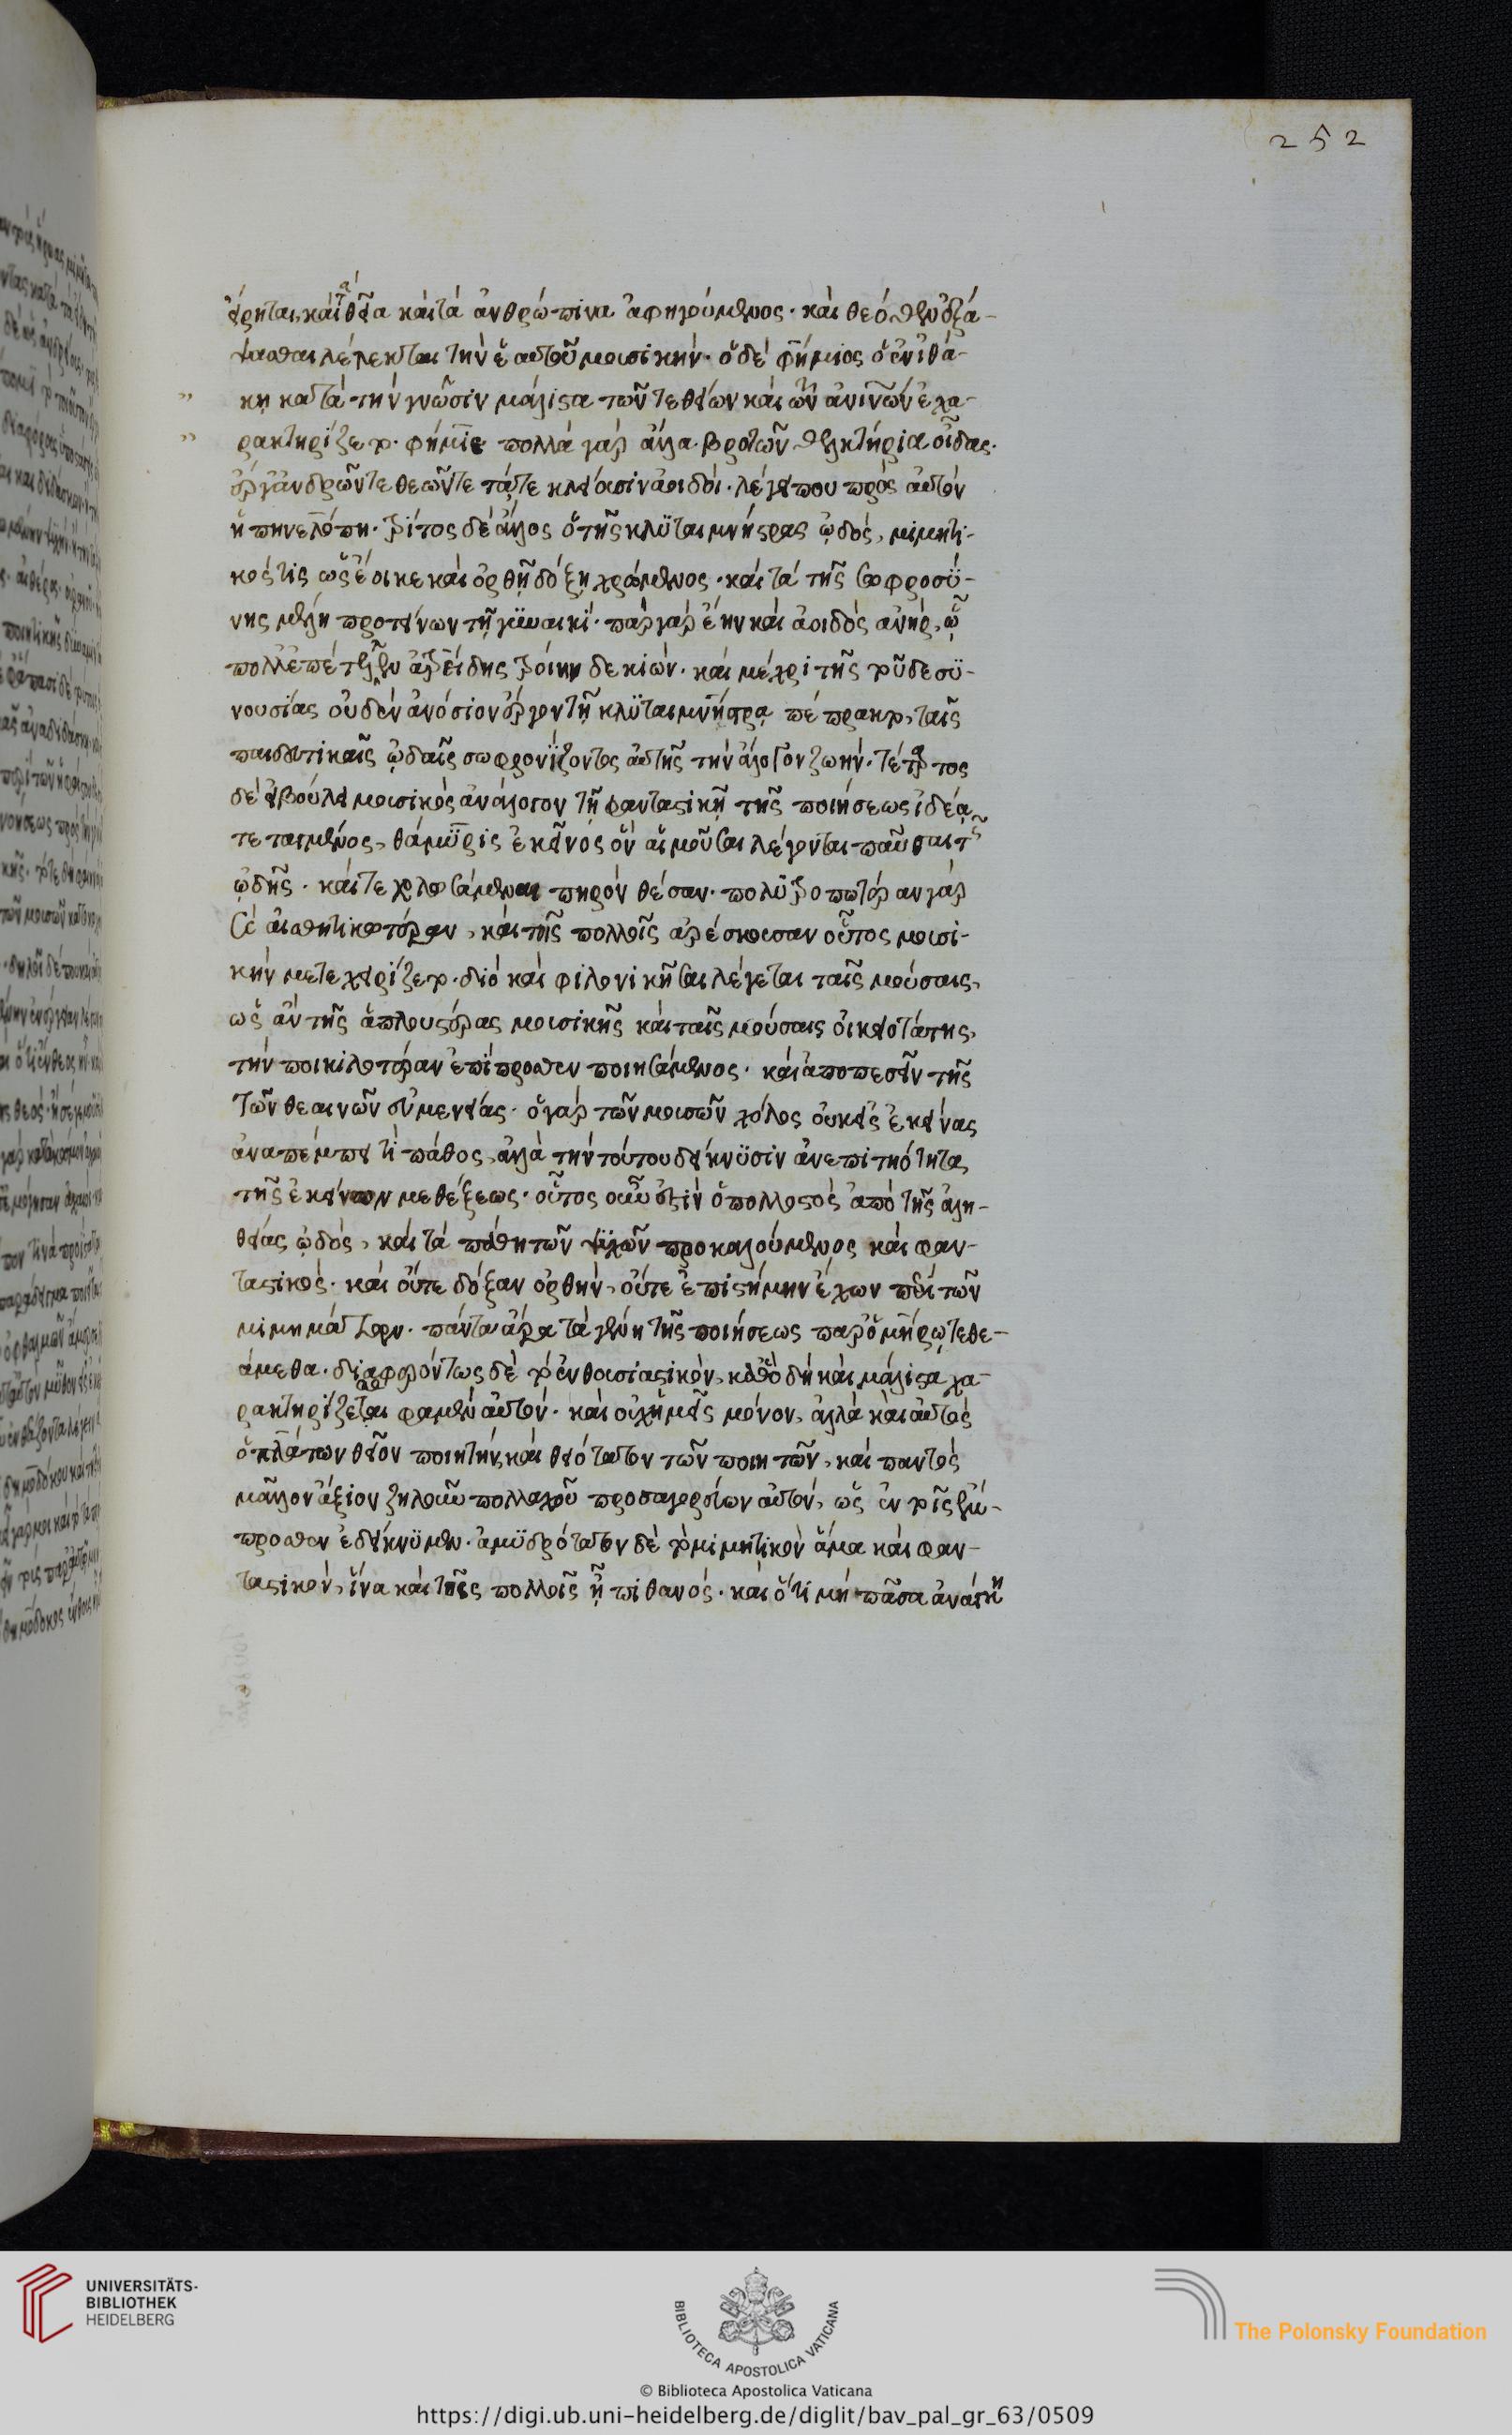 252
εἴρηται, καὶ τὰ θεῖα καὶ τὰ ἀνθρώπινα ἀφηγούμενος· καὶ θεόθεν ἐξά-
ψασθαι λέλεκται τὴν ἑαυτοῦ μουσικήν. ὁ δὲ φήμιος ὁ ἐν ἰθά-
κῃ κατὰ τὴν γνῶσιν μάλιστα τῶν τε θείων καὶ τῶν ἀνῖνων ἐχα-
ρακτηρίζετο. φήμιε πολλὰ γὰρ ἄλλα βροτῶν θελκτήρια οἶδας.
ἔργ' ἀνδρῶν τε θεῶν τε τά τε κλείουσιν ἀοιδοί. λέγει που πρὸς αὐτὸν
ἡ πηνελόπη. τρίτος δὲ ἄλλος ὁ τῆς κλυταιμνήστρας ᾠδός, μιμητι-
κός τις ὡς ἔοικε καὶ ὀρθῇ δόξῃ χρώμενος. καὶ τὰ τῆς σωφροσύ-
νης μέλη προτείνων τῇ γυναικί. παρ γὰρ ἔην καὶ ἀοιδὸς ἀνήρ, ᾧ
πόλλ' ἐπέτελλεν ἀτρείδης τροίην δε κιών. καὶ μέχρι τῆς τοῦδε συ-
νουσίας οὐδὲν ἀνόσιον ἔργον τῇ κλυταιμνήστρᾳ πέπρακτο, ταῖς
παιδευτικαῖς ᾠδαῖς σωφρονίζοντος αὐτῆς τὴν ἄλογον ζωήν. τέταρτος
δὲ εἰ βούλει μουσικὸς ἀνάλογον τῇ φανταστικῇ τῆς ποιήσεως ἰδέᾳ
τεταγμένος, θάμυρις ἐκεῖνος ὃν αἱ μοῦσαι λέγονται παῦσαι τῆς
ᾠδῆς. καί τε χολωσάμεναι πηρὸν θέσαν. πολυτροπωτέραν γὰρ
καὶ αἰσθητικωτέραν, καὶ τοῖς πολλοῖς ἀρέσκουσαν οὗτος μουσι-
κὴν μετεχειρίζετο. διὸ καὶ φιλονικῆσαι λέγεται ταῖς μούσαις,
ὡς ἂν τῆς ἁπλουστέρας μουσικῆς καὶ ταῖς μούσαις οἰκειοτάτης,
τὴν ποικιλοτέραν ἐπίπροσθεν ποιησάμενος. καὶ ἀποπεσεῖν τῆς
τῶν θεαινῶν εὐμενείας. ὁ γὰρ τῶν μουσῶν χόλος οὐκ εἰς ἐκείνας
ἀναπέμπει τι πάθος, ἀλλὰ τὴν τούτου δείκνυσιν ἀνεπιτηότητα
τῆς ἐκείνων μεθέξεως. οὗτος οὖν ἐστὶν ὁ πολλοστὸς ἀπὸ τῆς ἀλη-
θείας ᾠδός, καὶ τὰ πάθη τῶν ψυχῶν προκαλούμενος καὶ φαν-
ταστικός. καὶ οὔτε δόξαν ὀρθήν, οὔτε ἐπιστήμην ἔχων περὶ τῶν
μιμημάτων. πάντα ἄρα τὰ γένη τῆς ποιήσεως παρ' ὁμήρῳ τεθε-
άμεθα. διαφερόντως δὲ τὸ ἐνθουσιαστικόν, καθ' ὃ δὴ καὶ μάλιστα χα-
ρακτηρίζεσθαι φαμὲν αὐτόν. καὶ οὐχ ἡμεῖς μόνον, ἀλλὰ καὶ αὐτὸς
ὁ πλάτων θεῖον ποιητήν, καὶ θειότατον τῶν ποιητῶν, καὶ παντὸς
μᾶλλον ἄξιον ζηλοῦν πολλαχοῦ προσαγορεύων αὐτόν, ὡς ἐν τοῖς ἔμ-
προσθεν ἐδείκνυμεν. ἀμυδρότατον δὲ τὸ μιμητικὸν ἅμα καὶ φαν-
ταστικόν, ἵνα καὶ τοῖς πολλοῖς ᾖ πιθανός. καὶ ὅτι μὴ πᾶσα ἀνάγκη
UNIVERSITÄTS-
BIBLIOTHEK
HEIDELBERG
BIBLIOTECA APOSTOLICA VATICANA
The Polonsky Foundation
© Biblioteca Apostolica Vaticana
https://digi.ub.uni-heidelberg.de/diglit/bav_pal_gr_63/0509